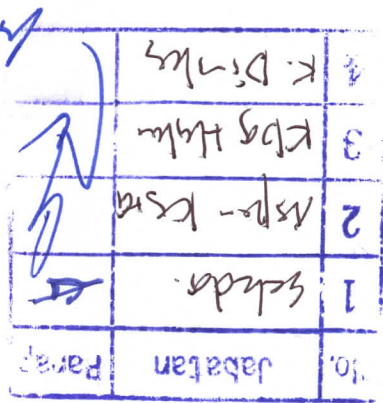 No. Jabatan Paraf
1 Sekda.
2 Aspem Kesra
3 Kbg Hukum
4 K. Dinkes